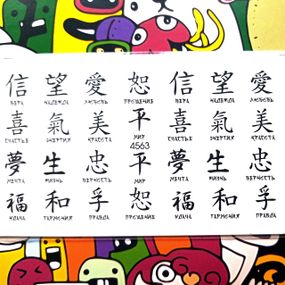 信 望 愛 恕 信 望 愛
ВЕРА НАДЕЖДА ЛЮБОВЬ ПРОЩЕНИЕ ВЕРА НАДЕЖДА ЛЮБОВЬ
喜 氣 美 平 喜 氣 美
СЧАСТЬЕ ЭНЕРГИЯ КРАСОТА МИР СЧАСТЬЕ ЭНЕРГИЯ КРАСОТА
4563
夢 生 忠 平 夢 生 忠
МЕЧТА ЖИЗНЬ ВЕРНОСТЬ МИР МЕЧТА ЖИЗНЬ ВЕРНОСТЬ
福 和 孚 恕 福 和 孚
УДАЧА ГАРМОНИЯ ПРАВДА ПРОЩЕНИЕ УДАЧА ГАРМОНИЯ ПРАВДА